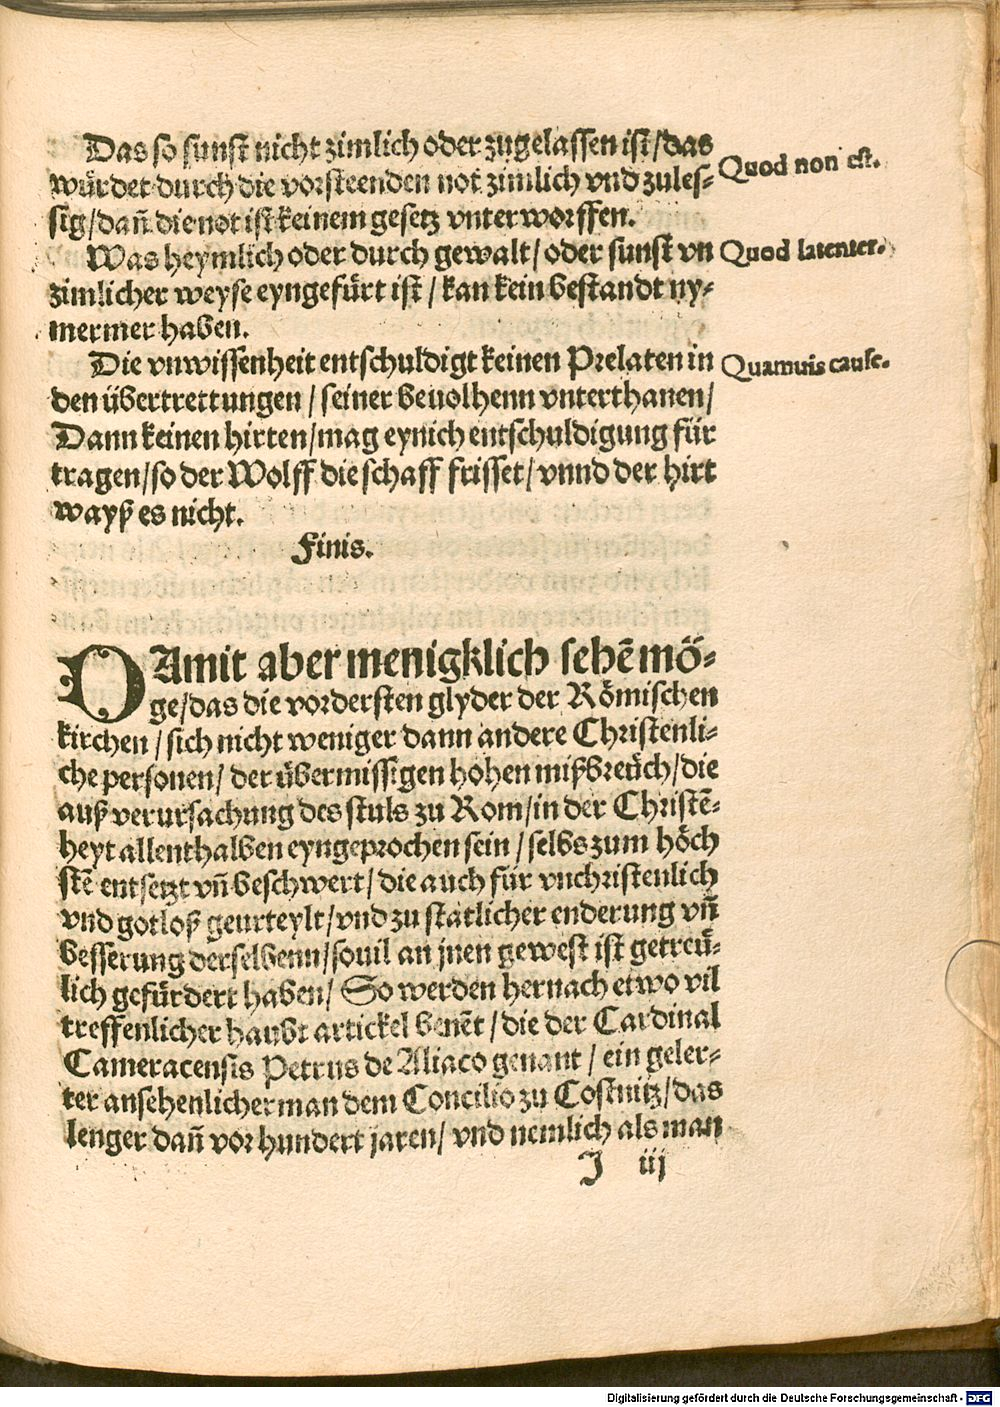 Das so sunst nicht zimlich oder zugelassen ist/das
würdet durch die vorsteenden not zimlich vnd zules-
sig/dañ die not ist keinem gesetz vnterworffen.
Quod non est.
Was heymlich oder durch gewalt/oder sunst vn
zimlicher weyse eyngefürt ist/kan kein bestandt ny-
mermer haben.
Quod latenter.
Die vnwissenheit entschuldigt keinen Prelaten in
den übertrettungen/seiner beuolhenn vnterthanen/
Dann keinen hirten/mag eynich entschuldigung für
tragen/so der Wolff die schaff frisset/vnnd der hirt
wayß es nicht.
Quamuis cause.
Finis.
DAmit aber menigklich sehē mö-
ge/das die vordersten glyder der Römischen
kirchen/sich nicht weniger dann andere Christenli-
che personen/der übermissigen hohen mißbreüch/die
auß verursachung des stuls zu Rom/in der Christē-
heyt allenthalben eyngeprochen sein/selbs zum höch
stē entsetzt vñ beschwert/die auch für vnchristenlich
vnd gotloß geurteylt/vnd zu statlicher enderung vñ
besserung derselbenn/souil an jnen gewest ist getreü-
lich gefürdert haben/So werden hernach etwo vil
treffenlicher haubt artickel benēt/die der Cardinal
Cameracensis Petrus de Aliaco genant/ein geler-
ter ansehenlicher man dem Concilio zu Costnitz/das
lenger dañ vor hundert jaren/vnd nemlich als man
J iij
Digitalisierung gefördert durch die Deutsche Forschungsgemeinschaft - DFG